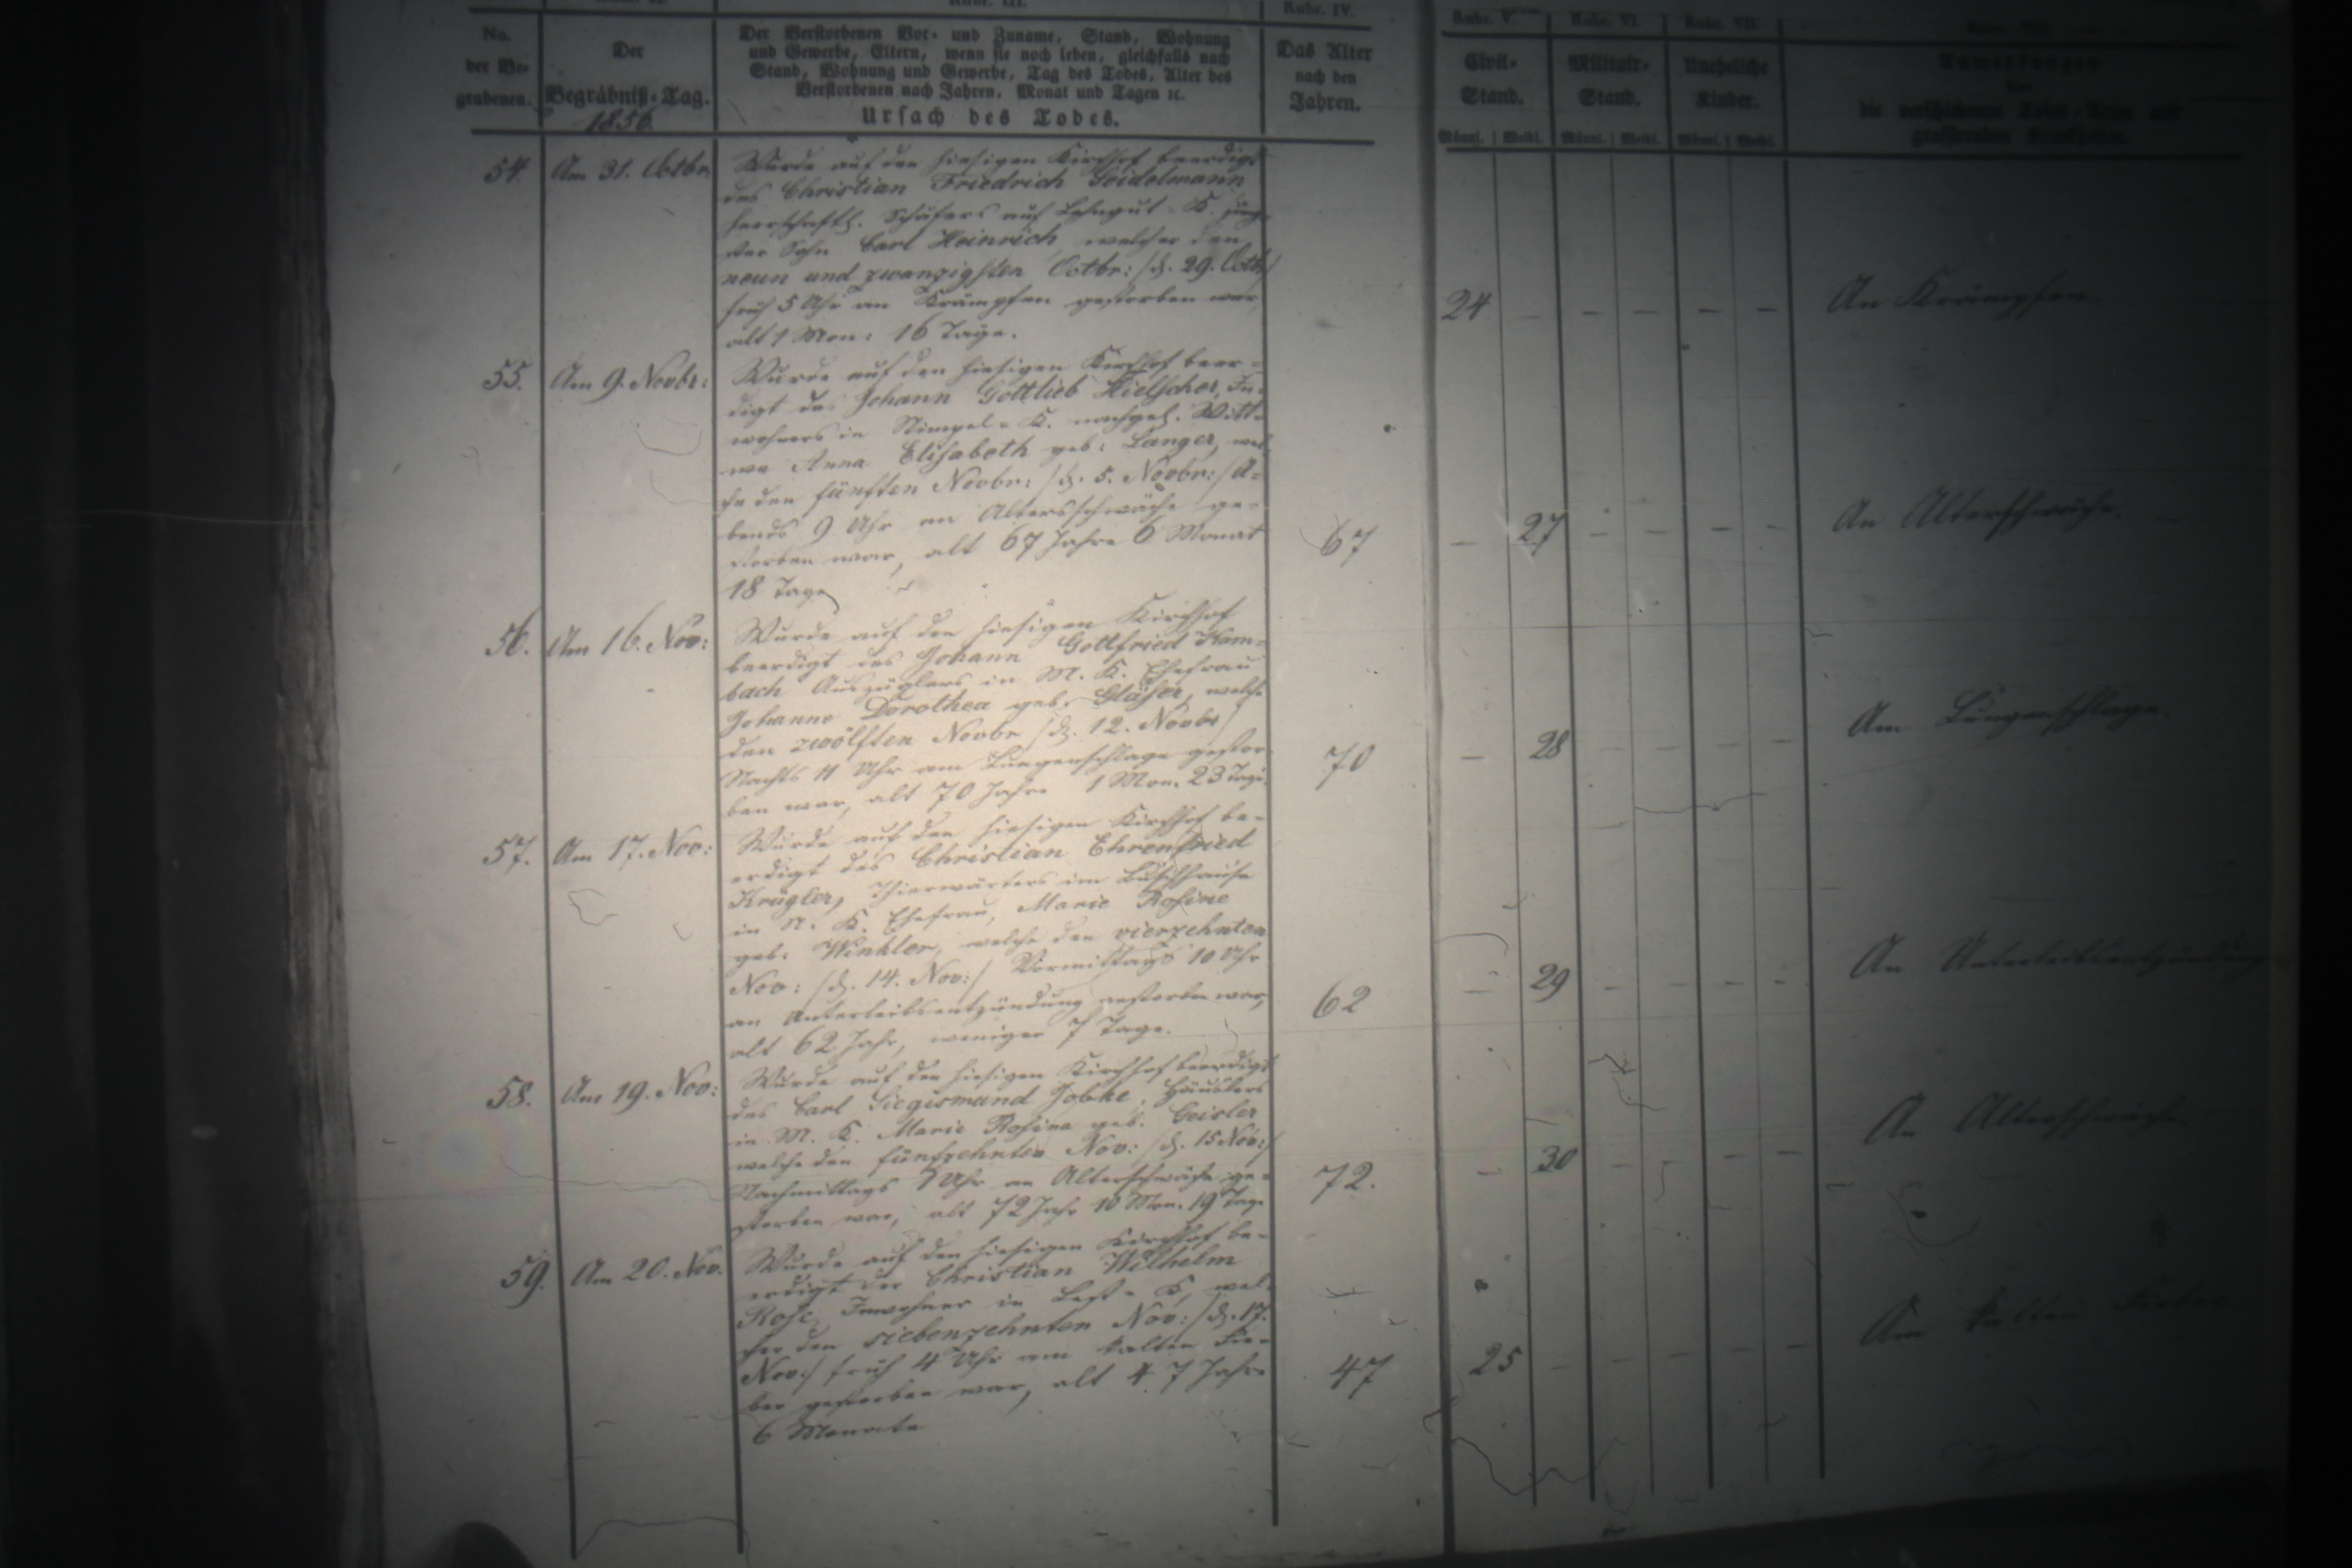 Rubr. III.
Rubr. IV.
Rubr. V.
Rubr. VI.
Rubr. VII.
No.
der Be-
grabenen.
Der
Begräbniß-Tag.
1856.
Der Verstorbenen Vor- und Zuname, Stand, Wohnung
und Gewerbe, Eltern, wenn sie noch leben, gleichfalls nach
Stand, Wohnung und Gewerbe, Tag des Todes, Alter des
Verstorbenen nach Jahren, Monat und Tagen ꝛc.
Ursach des Todes.
Das Alter
nach den
Jahren.
Civil-
Stand.
Männl. | Weibl.
Militair-
Stand.
Männl. | Weibl.
Uneheliche
Kinder.
Männl. | Weibl.
Anmerkungen
die verschiedenen Todes-Arten und
grassirenden Krankheiten.
54. Am 31. Octbr.
Wurde auf den hiesigen Kirchhof beerdigt
des Christian Friedrich Seidelmann
herrschaftl. Schäfers auf Lehngut-K. jüng-
ster Sohn Carl Heinrich, welcher den
neun und zwanzigsten Octbr: /d. 29. Octb/
früh 5 Uhr an Krämpfen gestorben war,
alt 1 Mon: 16 Tage.
24 – – – – –
An Krämpfen
55. Am 9. Novbr:
Wurde auf den hiesigen Kirchhof beer-
digt des Johann Gottlieb Hielscher, In-
wohners in K. nachgel. Witt-
we Anna Elisabeth geb: Langer, wel-
che den fünften Novbr: /d. 5. Novbr:/ A-
bends 9 Uhr an Altersschwäche ge-
storben war, alt 67 Jahre 6 Monat
18 Tage
67 – 27 – – – –
An Alterschwäche.
56. Am 16. Nov:
Wurde auf den hiesigen Kirchhof
beerdigt des Johann Gottfried Ham-
bach Auszüglers in M. K. Ehefrau
Johanne Dorothea geb. Gläser, welche
den zwölften Novbr /d. 12. Novbr/
Nachts 11 Uhr am Lungenschlage gestor-
ben war, alt 70 Jahre 1 Mon. 23 Tage.
70 – 28 – – – –
Am Lungenschlage.
57. Am 17. Nov:
Wurde auf den hiesigen Kirchhof be-
erdigt des Christian Ehrenfried
Krügler, Thierwärters im Buschhause
in N. K. Ehefrau, Marie Rosine
geb: Winkler, welche den vierzehnten
Nov: /d. 14. Nov:/ Vormittags 10 Uhr
an Unterleibsentzündung gestorben war,
alt 62 Jahr, weniger 7 Tage.
62 – 29 – – – –
An Unterleibsentzündung
58. Am 19. Nov:
Wurde auf den hiesigen Kirchhof beerdigt
des Carl Siegismund Jobke, Häuslers
in M. K. Marie Rosina geb. Geisler
welche den fünfzehnten Nov: /d. 15 Nov:/
Nachmittags 1 Uhr an Alterschwäche ge-
storben war, alt 72 Jahr 10 Mon. 19 Tage
72. – 30 – – – –
An Alterschwäche
59. Am 20. Nov.
Wurde auf den hiesigen Kirchhof be-
erdigt der Christian Wilhelm
Rose, Inwohner in K, wel-
cher den siebenzehnten Nov: /d. 17.
Nov:/ früh 4 Uhr am kalten Fie-
ber gestorben war, alt 47 Jahre
6 Monate
47 25 – – – – –
Am kalten Fieber